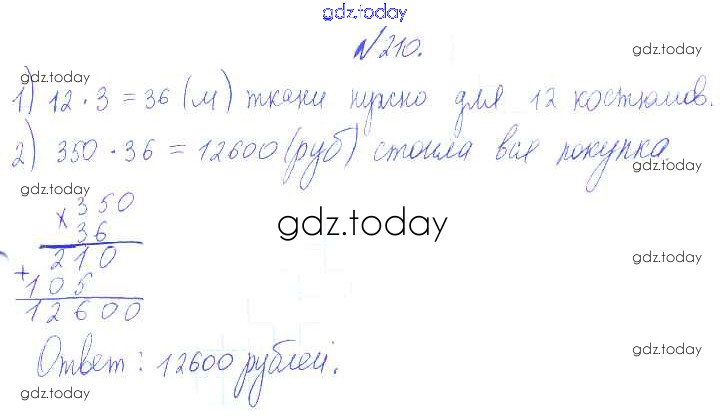 gdz.today
№210.
gdz.today
gdz.today
1) 12 · 3 = 36 (м) ткани нужно для 12 костюмов.
2) 350 · 36 = 12600 (руб) стоила вся покупка.
gdz.today
gdz.today
× 350
36
gdz.today
210
gdz.today
+ 105
12600
gdz.today
Ответ: 12600 рублей.
gdz.today
gdz.today